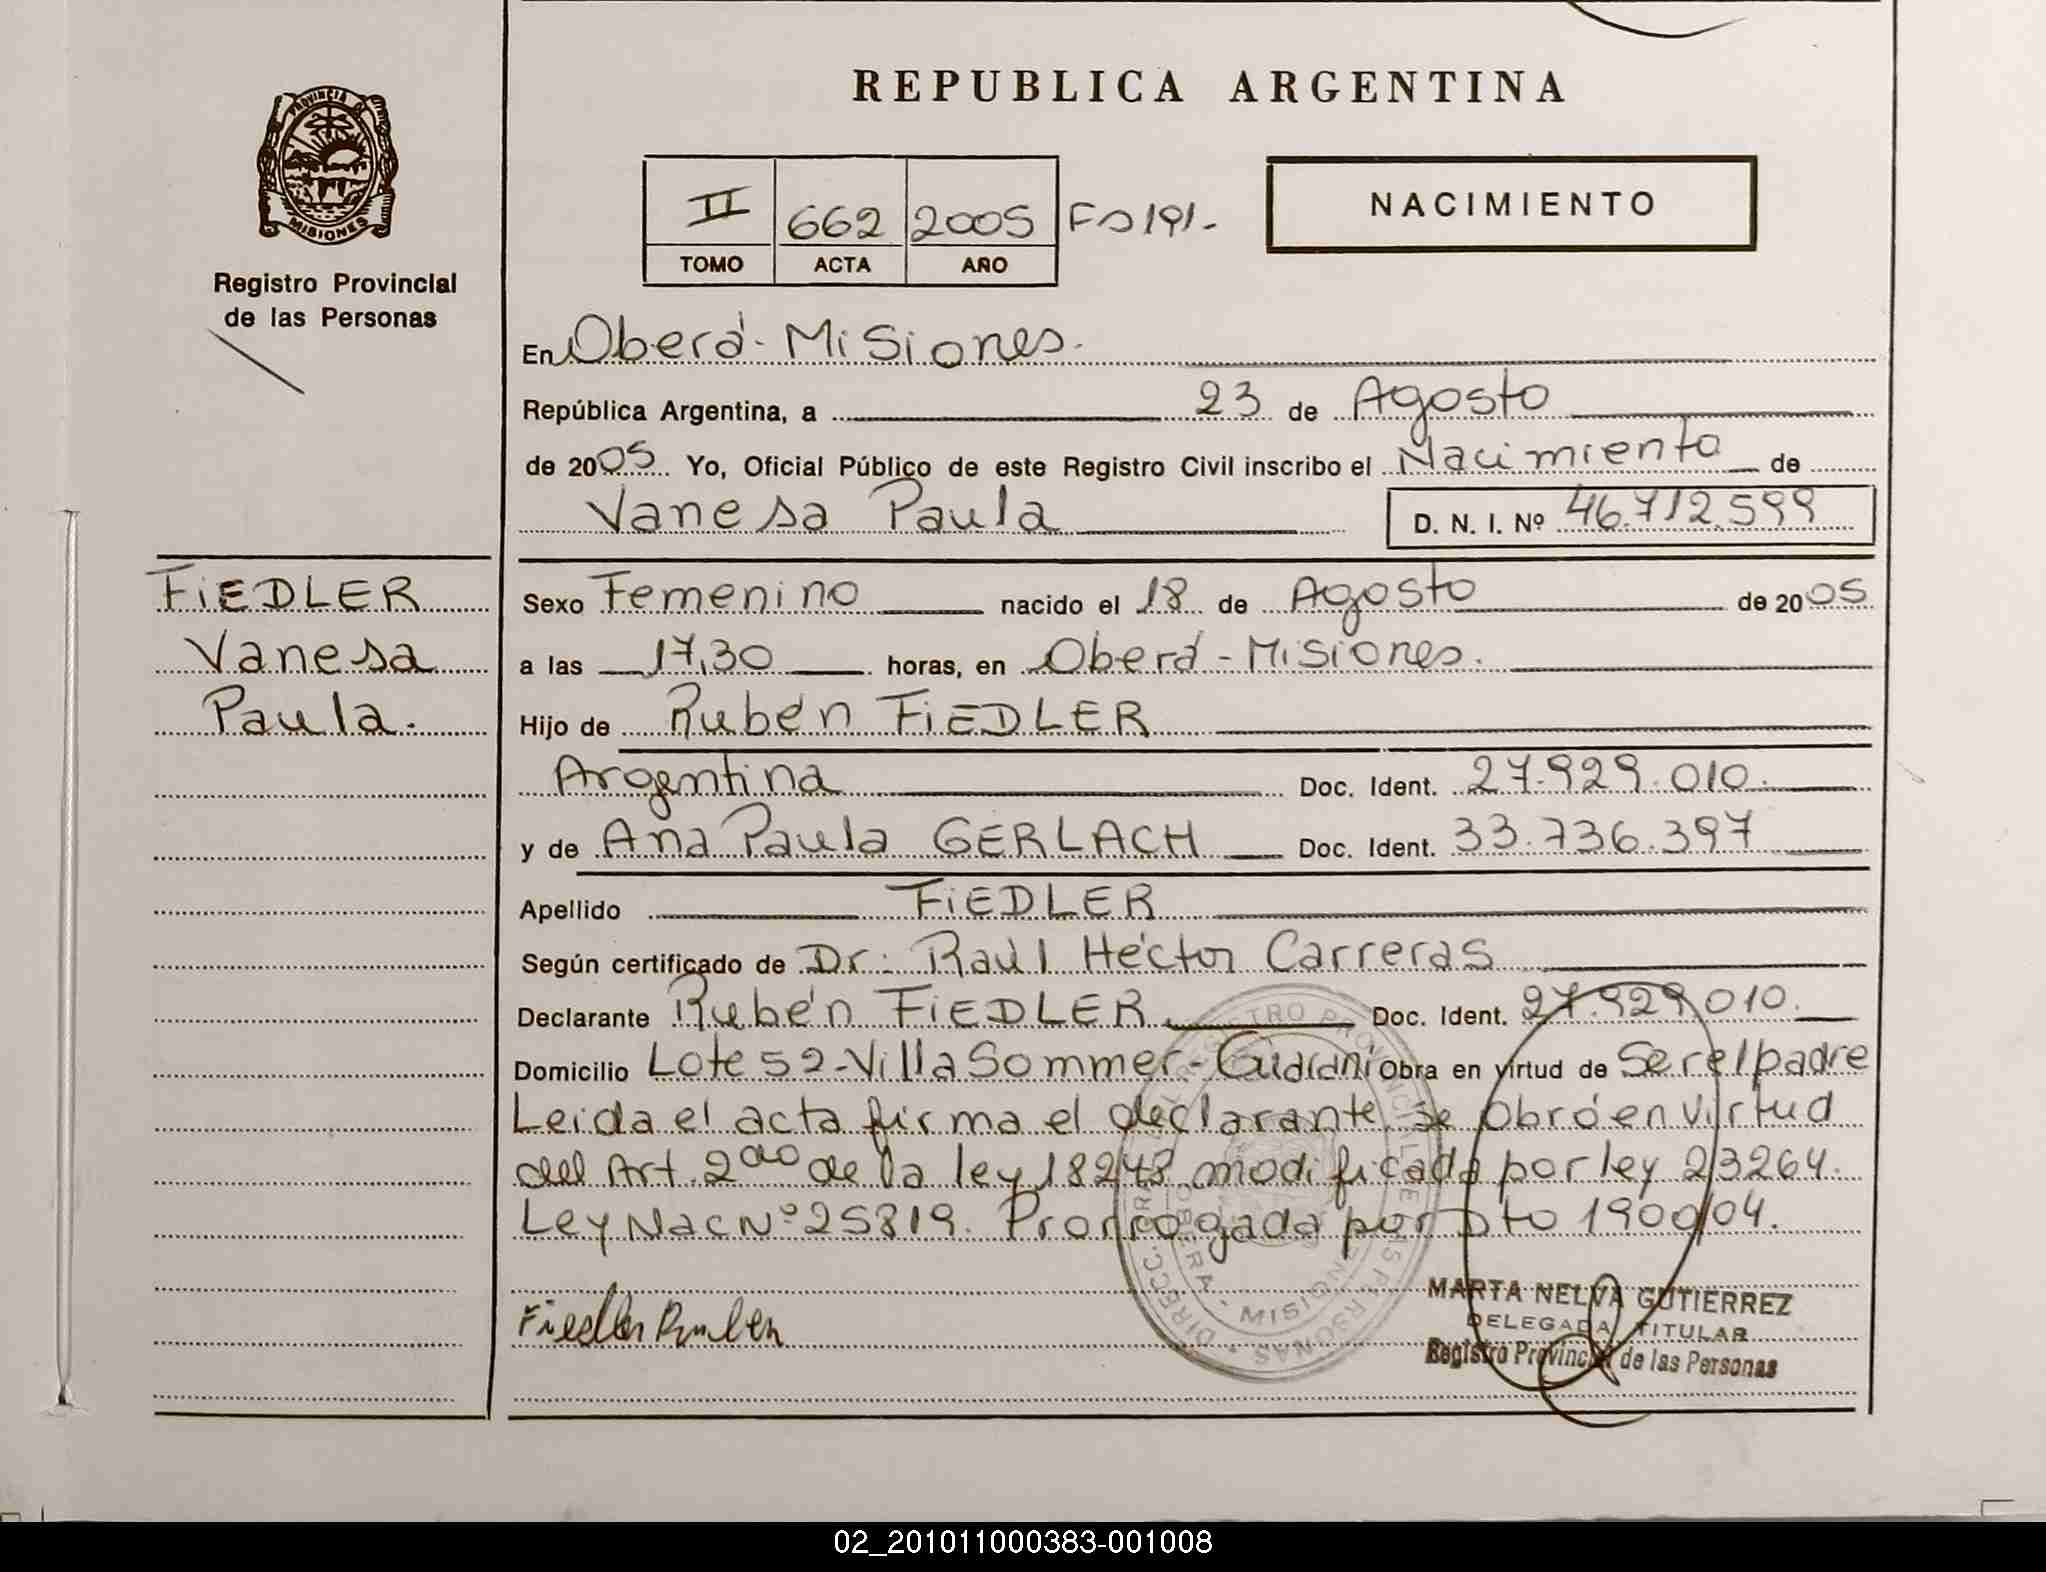 REPUBLICA ARGENTINA
PROVINCIA DE MISIONES
Registro Provincial
de las Personas
II 662 2005 Fo 191.
TOMO ACTA AÑO
NACIMIENTO
En Oberá - Misiones.
República Argentina, a 23 de Agosto
de 2005 Yo, Oficial Público de este Registro Civil inscribo el Nacimiento de
Vanesa Paula D. N. I. Nº 46.712.599
FiEDLER
Vanesa
Paula.
Sexo Femenino nacido el 18 de Agosto de 2005
a las 17,30 horas, en Oberá - Misiones.
Hijo de Rubén FiEDLER
Argentina Doc. Ident. 27.929.010.
y de Ana Paula GERLACH Doc. Ident. 33.736.397
Apellido FiEDLER
Según certificado de Dr. Raúl Héctor Carreras
Declarante Rubén FiEDLER Doc. Ident. 27.929.010.
Domicilio Lote 52 - Villa Sommer - Guaraní Obra en virtud de Ser el padre
Leida el acta firma el declarante, se obró en virtud
del Art. 2do de la ley 18248 modificada por ley 23264.
Ley Nac Nº 25819. Prorrogada por Dto 1900/04.
Fiedler Ruben
MARTA NELVA GUTIERREZ
DELEGADA TITULAR
Registro Provincial de las Personas
02_201011000383-001008